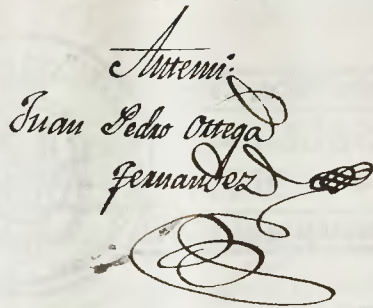 Antemi.
Juan Pedro Ortega
Fernandez